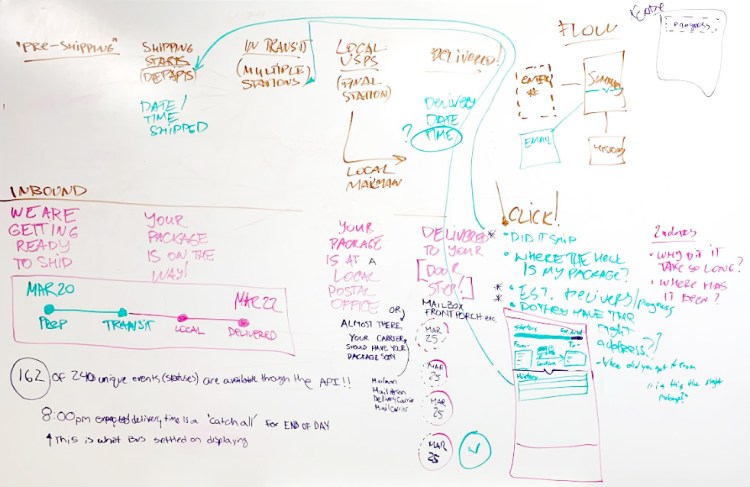 "PRE-SHIPPING"
SHIPPING
STARTS
(DEPARTS)
DATE/
TIME
SHIPPED
IN TRANSIT
(MULTIPLE)
STATIONS
LOCAL
USPS
(FINAL
STATION)
LOCAL
MAILMAN
DELIVERED!
DELIVERY
DATE
? TIME
FLOW
ENTER
#
SUMMARY
EMAIL
HISTORY
Progress
INBOUND
WE ARE
GETTING
READY
TO SHIP
YOUR
PACKAGE
IS ON THE
WAY!
YOUR
PACKAGE
IS AT A
LOCAL
POSTAL
OFFICE
OR,
ALMOST THERE,
YOUR CARRIER
SHOULD HAVE YOUR
PACKAGE SOON
Mailman
DeliveryCarrier
MailCarrier
DELIVERED
TO YOUR
[DOOR
STEP!]
MAILBOX
FRONT PORCH etc
MAR
25
MAR
25
MAR
25
MAR
25
MAR 20
MAR 22
PREP
TRANSIT
LOCAL
DELIVERED
162 OF 240 unique events (statuses) are available through the API!!
8:00pm expected delivery time is a "catch all" FOR END OF DAY
↑ This is what BWS settled on displaying
CLICK!
* • DID IT SHIP
• WHERE THE HELL
IS MY PACKAGE?
* • EST. DELIVERY/progress
* • DO THEY HAVE THE
right
address??
2ndary
• WHY DID IT
TAKE SO LONG?
• WHERE HAS
IT BEEN?
From
To
History